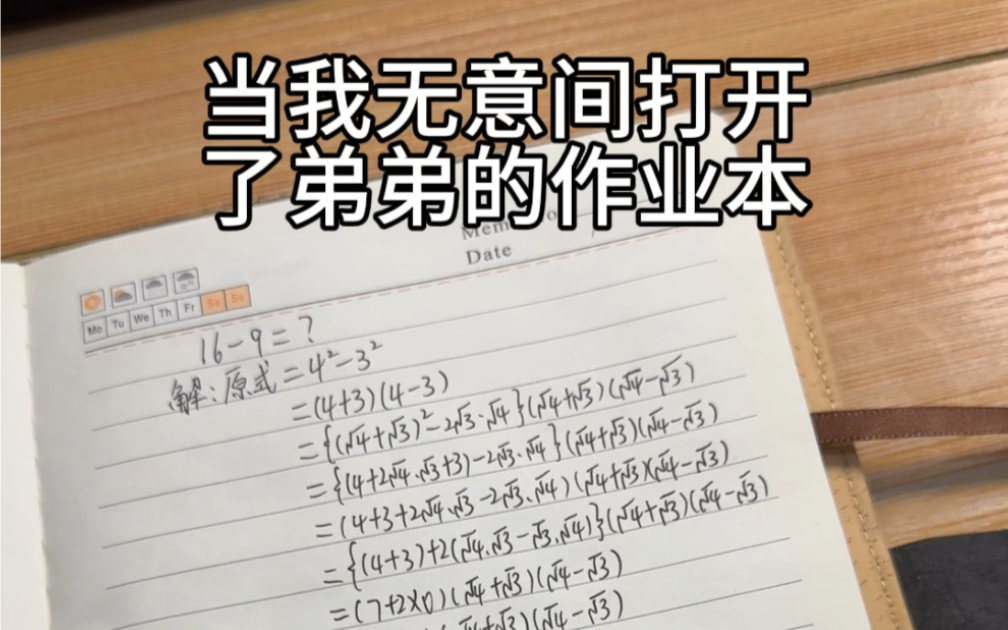 当我无意间打开
了弟弟的作业本
Date
Mo Tu We Th Fr Sa Su
16-9=?
解:原式=4²-3²
=(4+3)(4-3)
={(√4+√3)²-2√3·√4}(√4+√3)(√4-√3)
={(4+2√4·√3+3)-2√3·√4}(√4+√3)(√4-√3)
=(4+3+2√4·√3-2√3·√4)(√4+√3)(√4-√3)
={(4+3)+2(√4·√3-√3·√4)}(√4+√3)(√4-√3)
=(7+2×0)(√4+√3)(√4-√3)
(√4+√3)(√4-√3)